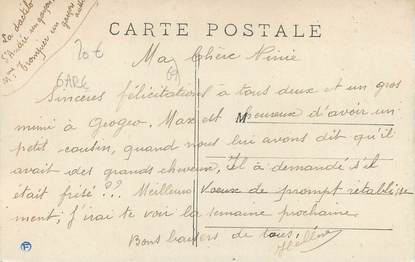 La dactilo
St André un garçon
Tromper un garçon
CARTE POSTALE
20 €
Ma Chère Ninie
Sincères félicitations à tous deux et un gros
mimi à Geogeo. Max est heureux d'avoir un
petit cousin, quand nous lui avons dit qu'il
avait des grands cheveux, Il à demandé s'il
était frisé ?? Meilleurs voeux de prompt rétablisse
ment, j'irai te voir la semaine prochaine.
Bons baisers de tous, Hélène